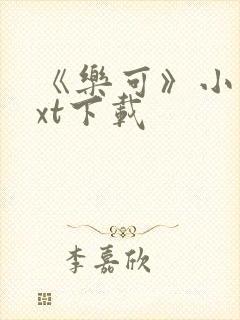 《樂可》小
xt下載
李嘉欣